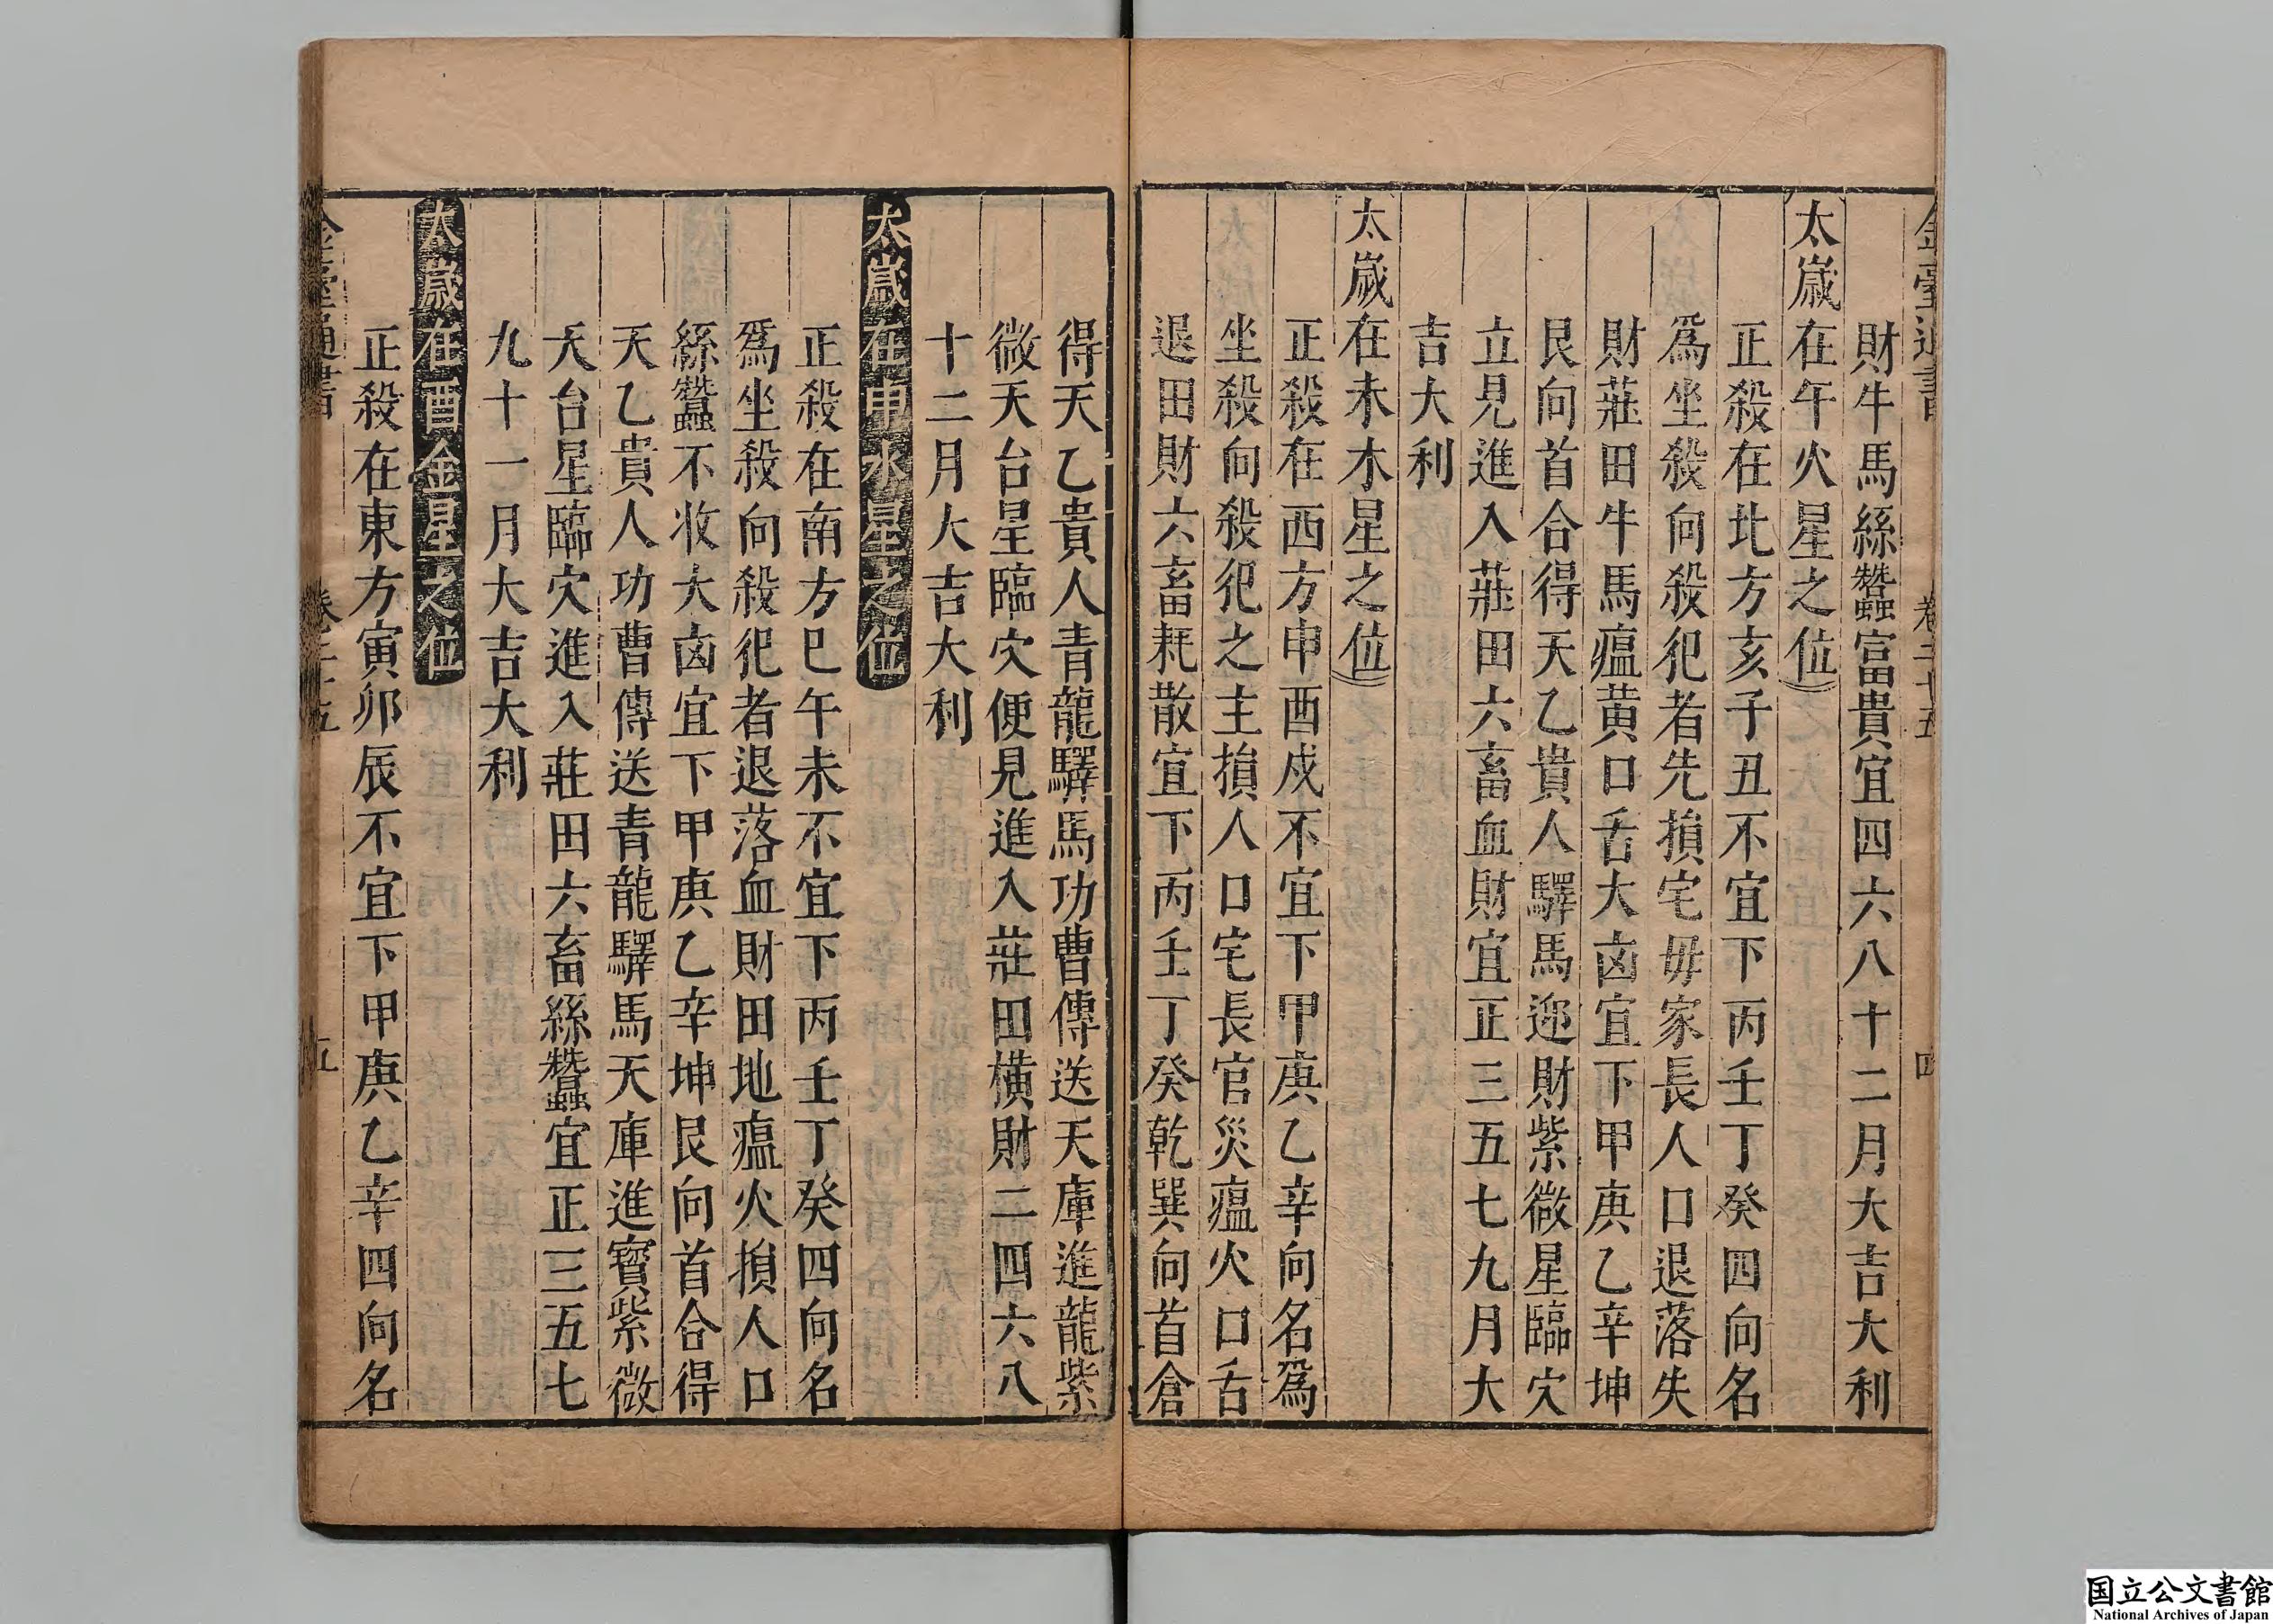 財牛馬絲蠶富貴宜四六八十二月大吉大利
太嵗在午火星之位
正殺在北方亥子丑不宜下丙壬丁癸四向名
爲坐殺向殺犯者先損宅毋家長人口退落失
財莊田牛馬瘟黄口舌大凶宜下甲庚乙辛坤
艮向首合得天乙貴人驛馬迎財紫微星臨穴
立見進入莊田六畜血財宜正三五七九月大
吉大利
太嵗在未木星之位
正殺在西方申酉戍不宜下甲庚乙辛向名爲
坐殺向殺犯之主損人口宅長官災瘟火口舌
退田財六畜耗散宜下丙壬丁癸乾巽向首倉
得天乙貴人青龍驛馬功曹傳送天庫進龍紫
微天台星臨穴便見進入莊田横財二四六八
十二月大吉大利
太嵗在申水星之位
正殺在南方巳午未不宜下丙壬丁癸四向名
爲坐殺向殺犯者退落血財田地瘟火損人口
絲蠶不收大凶宜下甲庚乙辛坤艮向首合得
天乙貴人功曹傳送青龍驛馬天庫進寳紫微
天台星臨穴進入莊田六畜絲蠶宜正三五七
九十一月大吉大利
太嵗在酉金星之位
正殺在東方寅卯辰不宜下甲庚乙辛四向名
卷二十五
四
五
国立公文書館
National Archives of Japan